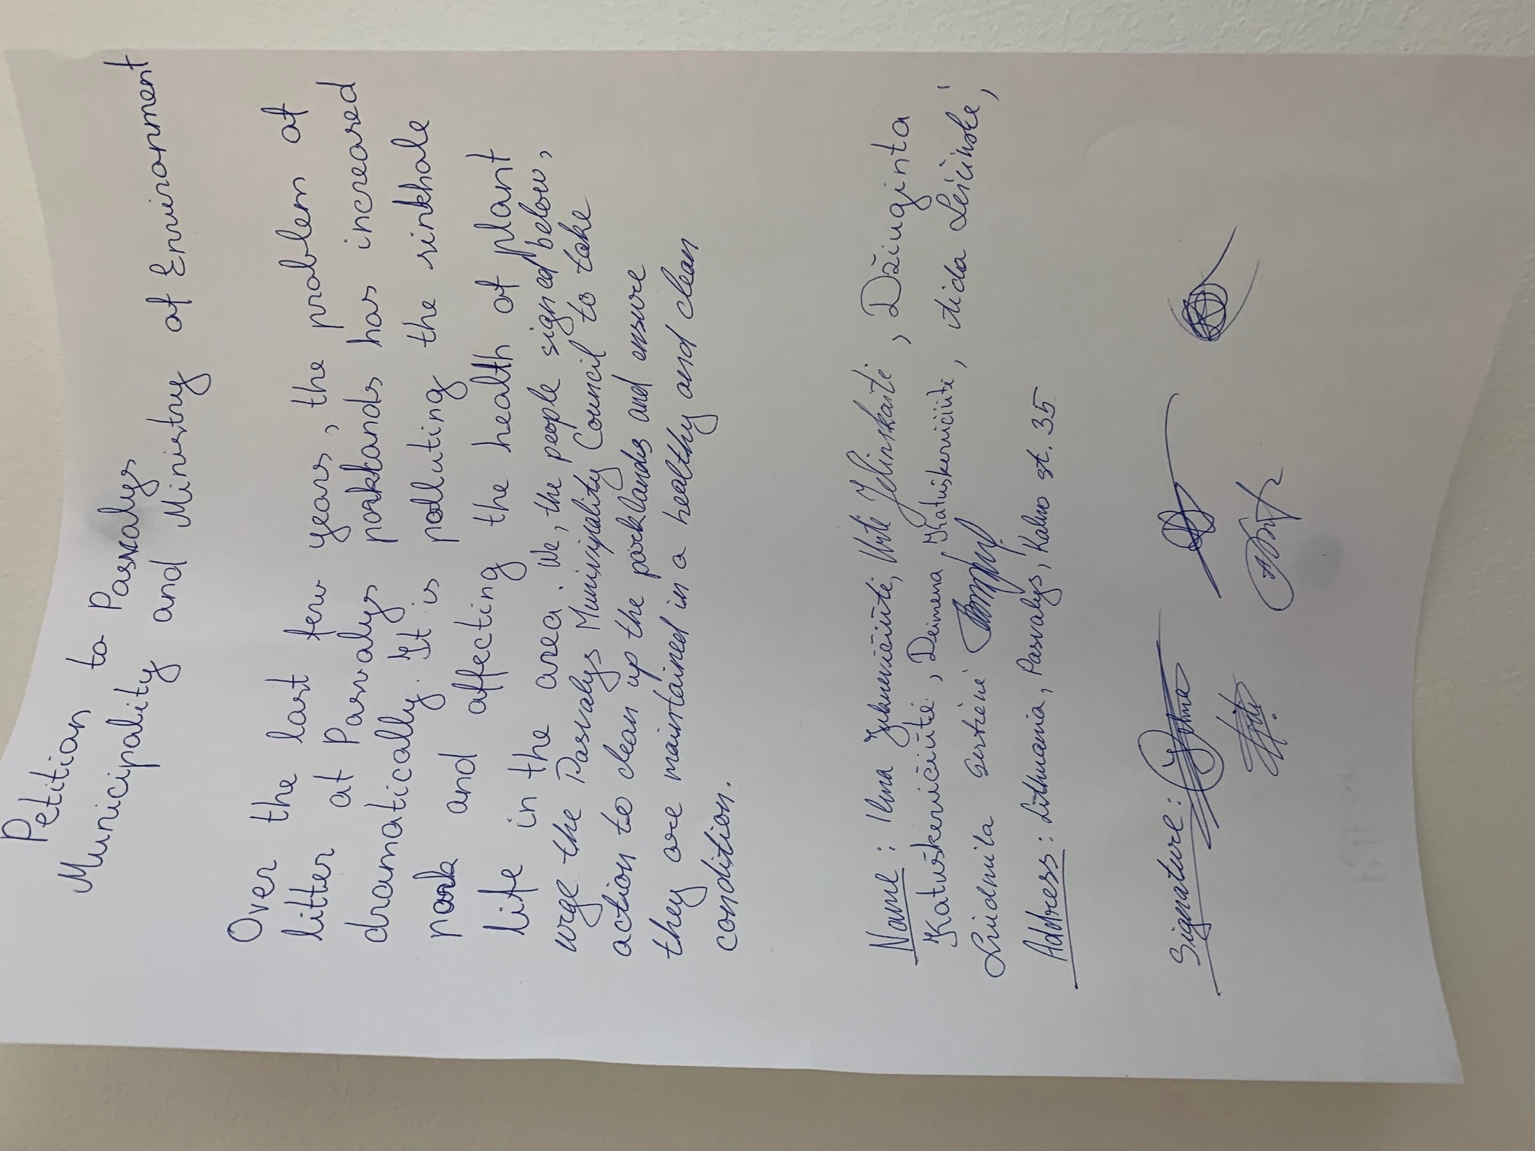 Petition to Pasvalys
Municipality and Ministry of Environment
Over the last few years, the problem of
litter at Pasvalys parklands has increased
dramatically. It is polluting the sinkhole
park and affecting the health of plant
life in the area. We, the people signed below,
urge the Pasvalys Municipality Council to take
action to clean up the parklandes and ensure
they are maintained in a healthy and clean
condition.
Name: Ilma Jelinskaitė, Džiuginta
Katuškevičiūtė, Deimena Katuškevičiūtė, Aida Leščinskė,
Liudmila Gertienė
Address: Lithuania, Pasvalys, Kalno st. 35
Signature: